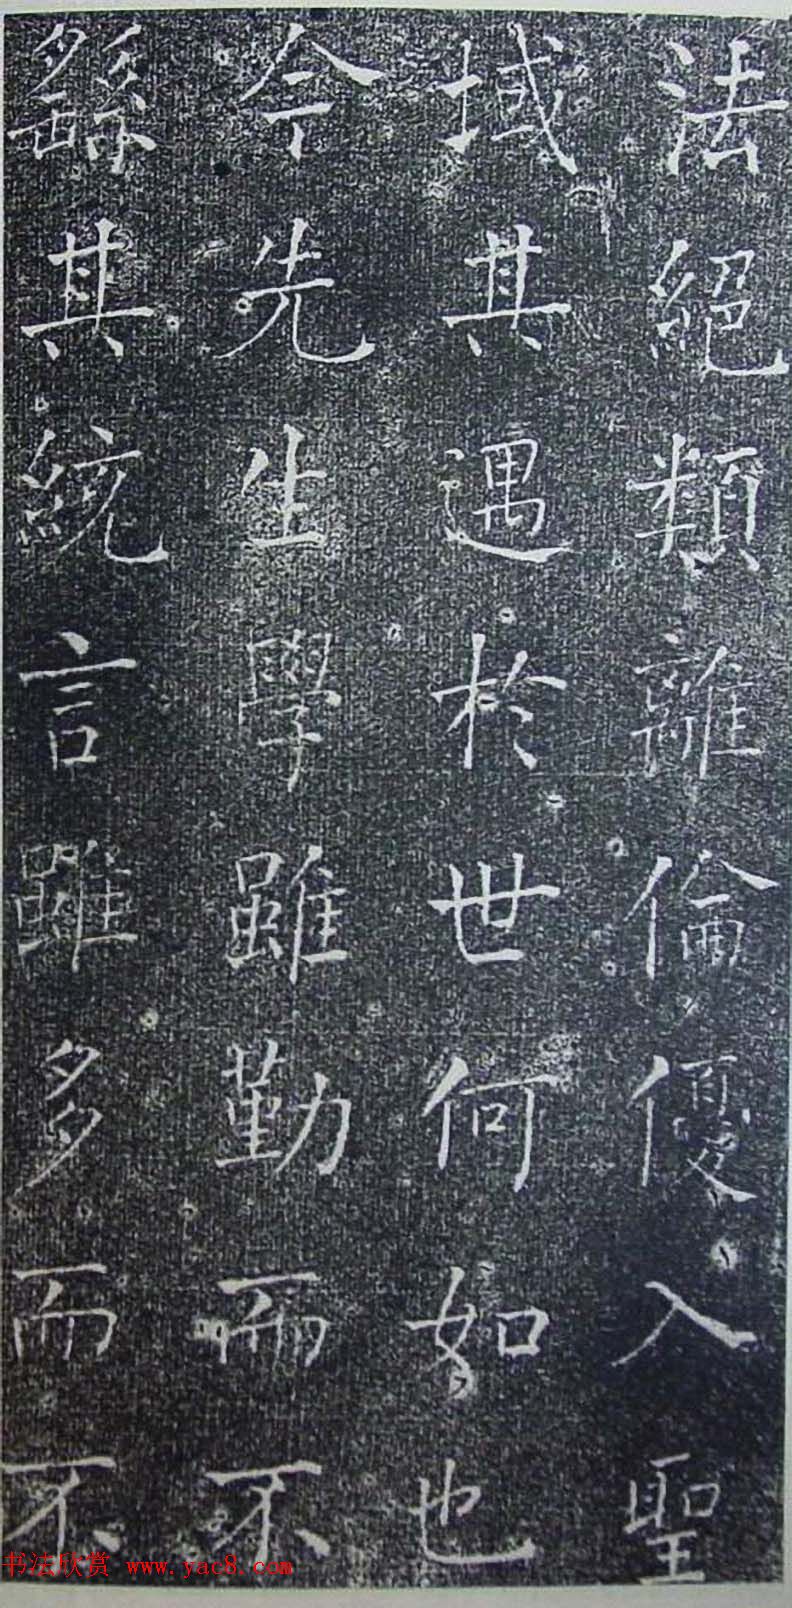 法絕類離倫優入聖
域其遇於世何如也
今先生學雖勤而不
繇其統言雖多而不
书法欣赏 www.yac8.com